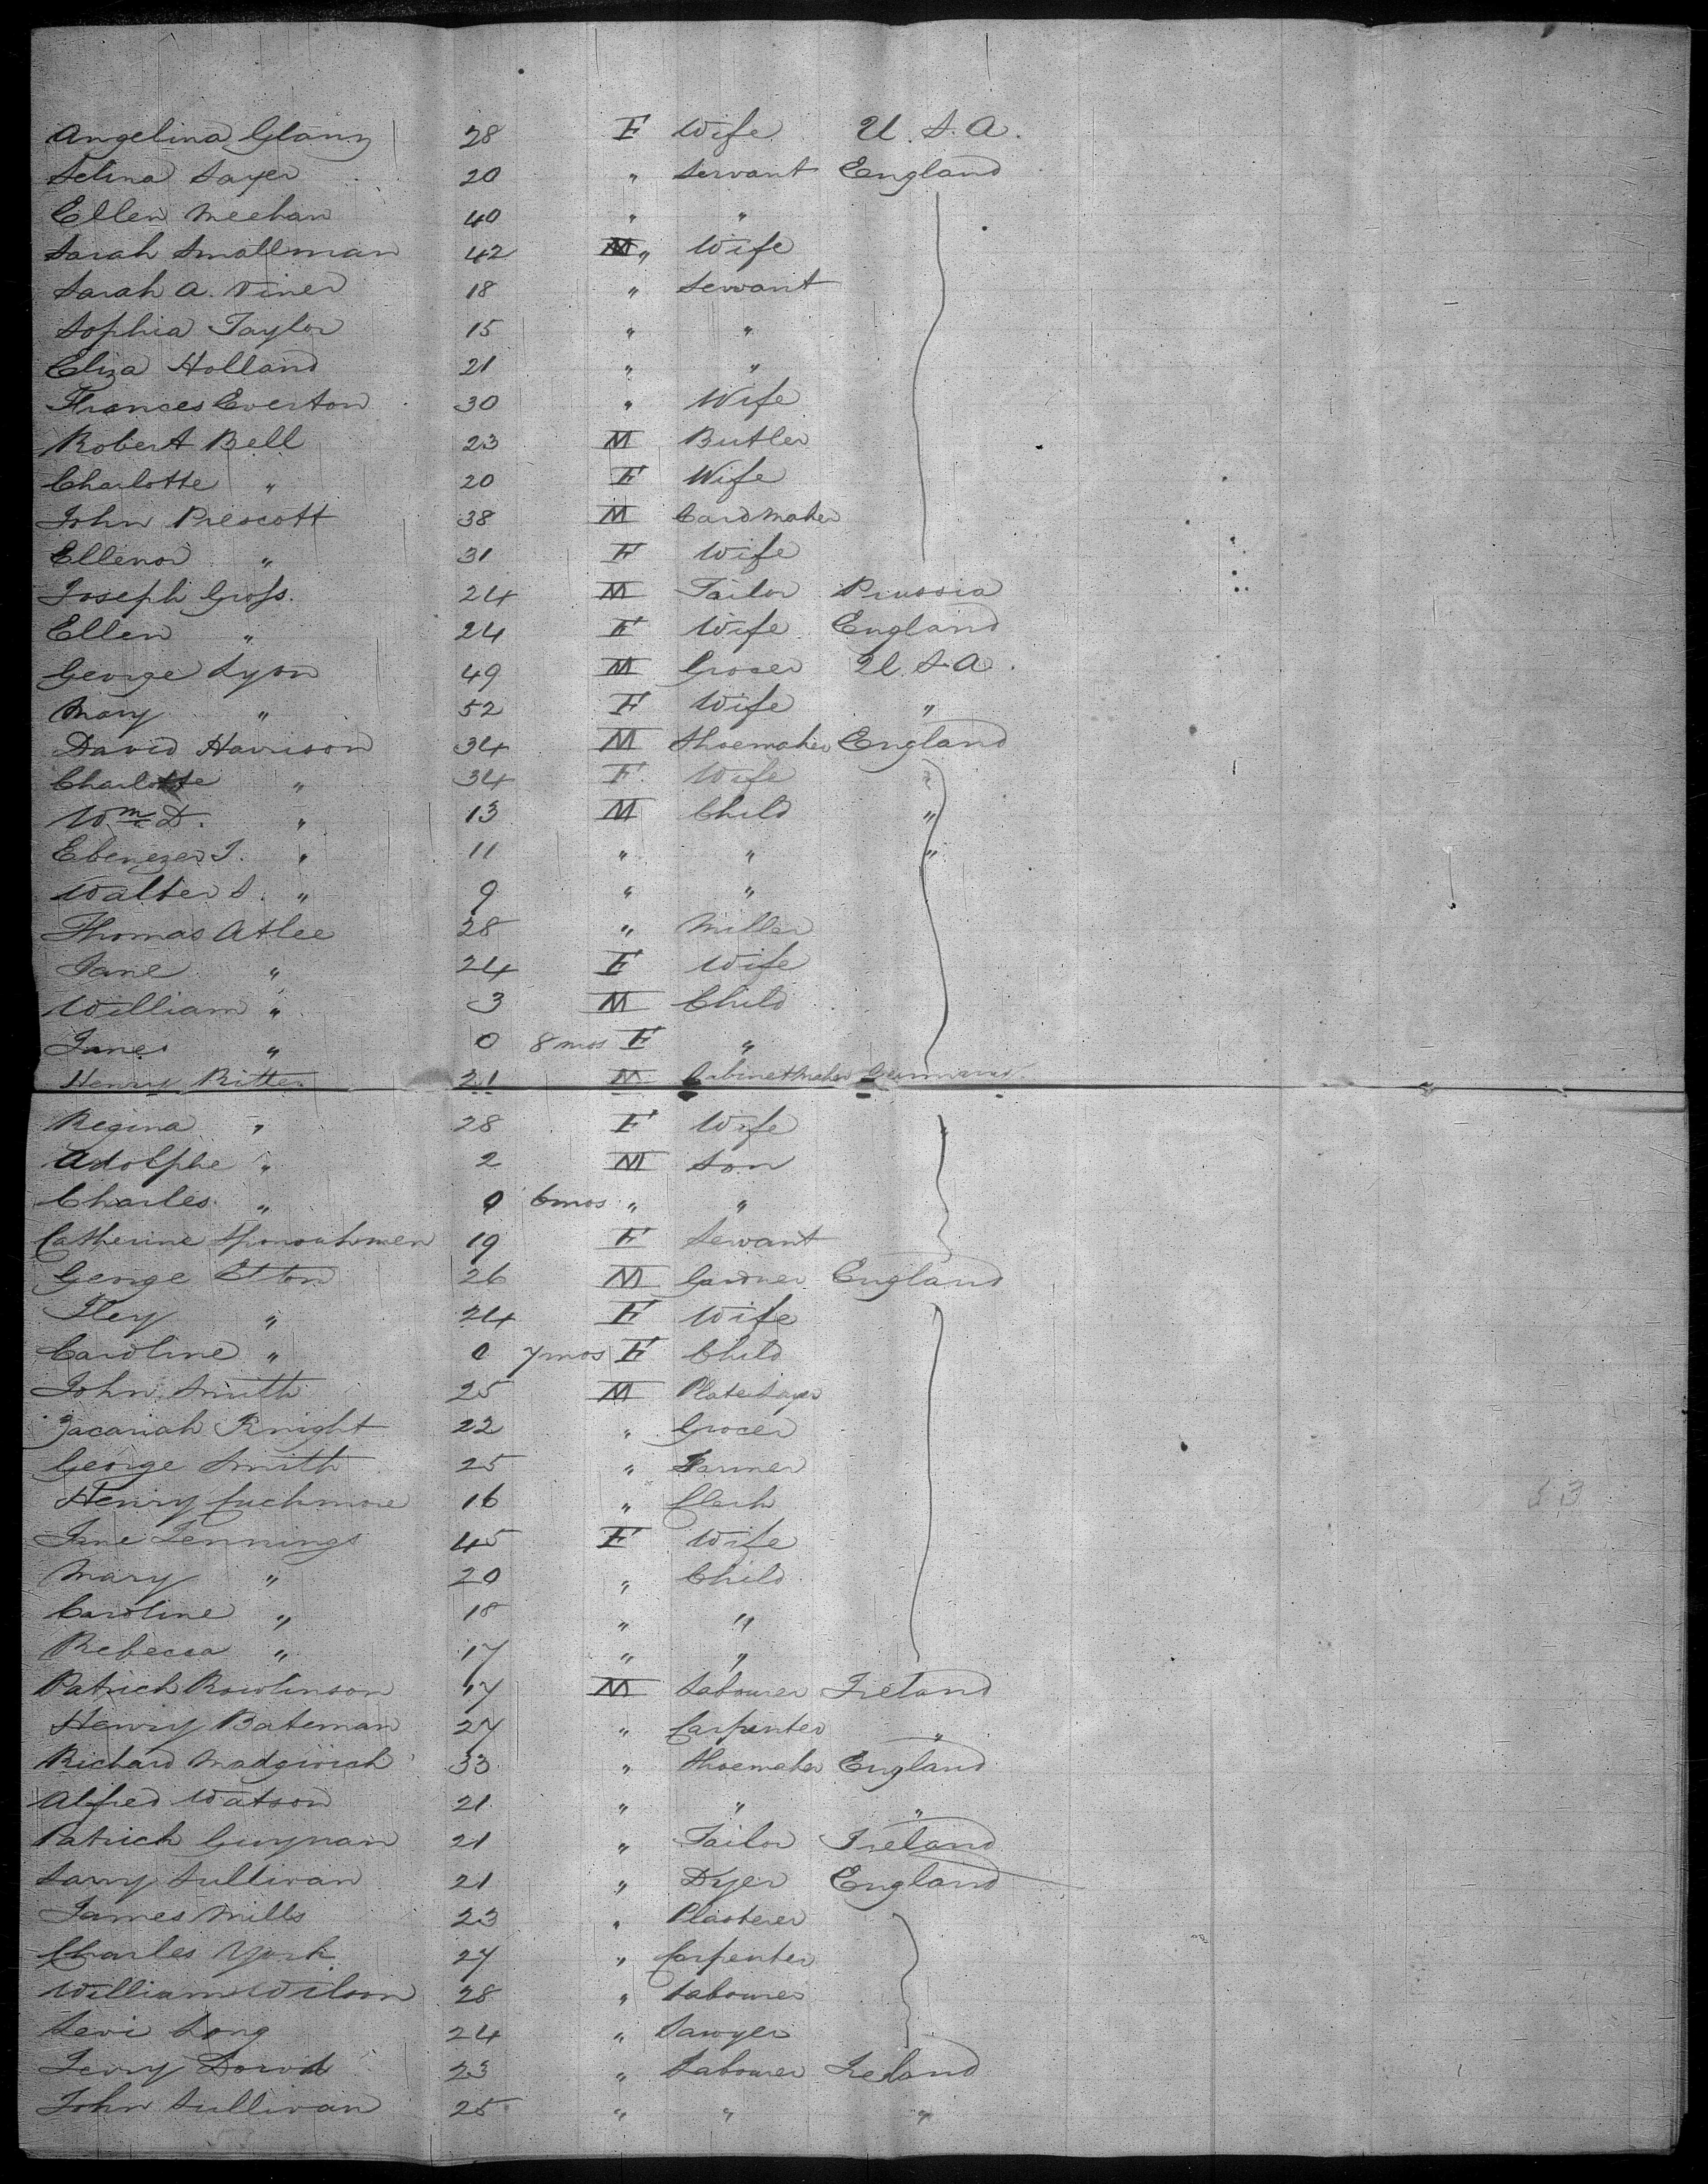 Angelina Glanz 28 F Wife U.S.A.
Selina Sayer 20 " Servant England
Ellen Meehan 40 " "
Sarah Smallman 42 " Wife
Sarah A. Viner 18 " Servant
Sophia Taylor 15 " "
Eliza Holland 21 " "
Frances Everton 30 " Wife
Robert Bell 23 M Butler
Charlotte " 20 F Wife
John Prescott 38 M Cardmaker
Ellenor " 31 F Wife
Joseph Gross. 24 M Tailor Prussia
Ellen " 24 F Wife England
George Lyon 49 M Grocer U.S.A.
Mary " 52 F Wife "
David Harrison 34 M Shoemaker England
Charlotte " 34 F Wife "
Wm D. " 13 M Child "
Ebenezer J. " 11 " " "
Walter S. " 9 " "
Thomas Atlee 28 " Miller
Jane " 24 F Wife
William " 3 M Child
" 0 8 mos F "
Henry Ritter 21 M Cabinetmaker Germany
Regina " 28 F Wife
Adolphe " 2 M Son
Charles " 0 6mos " "
Catherine 19 F Servant
George 26 M Gardner England
" 24 F Wife
Caroline " 0 7mos F Child
John Smith 25 M
Zacariah Knight 22 " Grocer
George Smith 25 " Farmer
Henry 16 " Clerk
Jane Jennings 45 F Wife
Mary " 20 " Child
Caroline " 18 " "
Rebecca " 17 " "
Patrick Rowlinson 17 M Labourer Ireland
Henry Bateman 27 " Carpenter "
Richard Madgwick 33 " Shoemaker England
Alfred Watson 21 " " "
Patrick Guynan 21 " Tailor Ireland
Sullivan 21 " Dyer England
James Mills 23 " Plasterer
Charles York 27 " Carpenter
William Wilson 28 " Labourer
Levi Long 24 " Sawyer
Jerry 23 " Labourer Ireland
John Sullivan 25 " " "